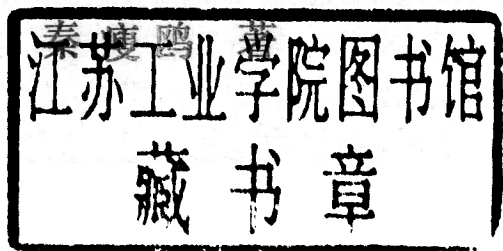 秦瘦鸥 著
江苏工业学院图书馆
藏书章